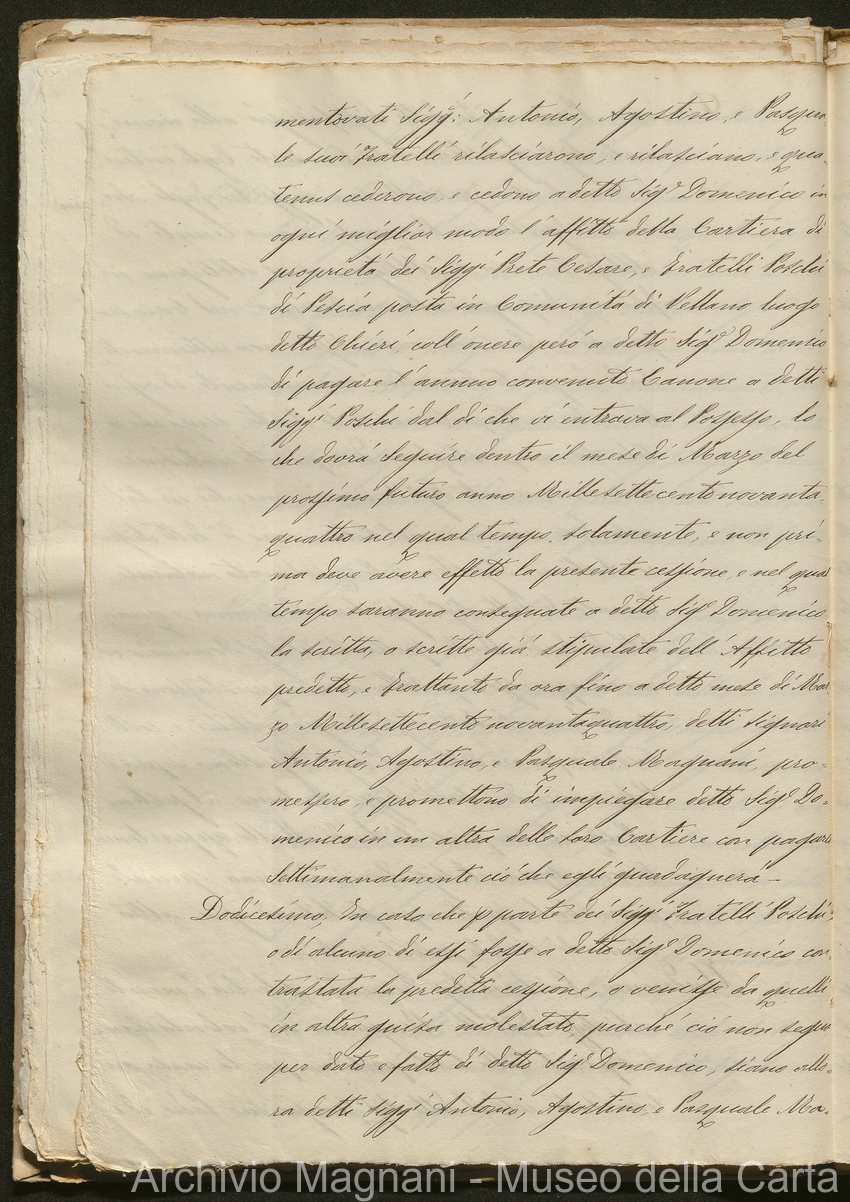 mentovati Sigg:ri Antonio, Agostino, e Pasqua-
le suoi Fratelli rilasciarono, e rilasciano, e qua-
tenus cederono, e cedono a detto Sig.r Domenico in
ogni miglior modo l'affitto della Cartiera di
proprietà dei Sigg.i Prete Cesare, e Fratelli Poschi
di Pescia posta in Comunità di Vellano luogo
detto Chieri, coll'onere però a detto Sig.r Domenico
di pagare l'annuo convenuto Canone a detti
Sigg.i Poschi dal dì che vi entrava al Possesso, lo
che dovrà Seguire dentro il mese di Marzo del
prossimo futuro anno Millesettecentonovanta-
quattro nel qual tempo solamente, e non pri-
ma deve avere effetto la presente cessione, e nel qual
tempo saranno consegnate a detto Sig.r Domenico
la scritta, o scritte già stipulate dell'Affitto
predetto, e frattanto da ora fino a detto mese di Mar-
zo Millesettecentonovantaquattro, detti Signori
Antonio, Agostino, e Pasquale Magnani, pro-
messero, e promettono di impiegare detto Sig.r Do-
menico in un altra delle loro Cartiere con pagarli
Settimanalmente ciò che egli guadagnerà –
Dodicesimo, In caso che p parte dei Sigg.i Fratelli Poschi,
o di alcuno di essi fosse a detto Sig.r Domenico con-
trastata la predetta cessione, o venisse da quelli
in altra guisa molestato, purché ciò non segua
per dato e fatto di detto Sig.r Domenico, siano allo-
ra detti Sigg.i Antonio, Agostino, e Pasquale Ma-
Archivio Magnani - Museo della Carta